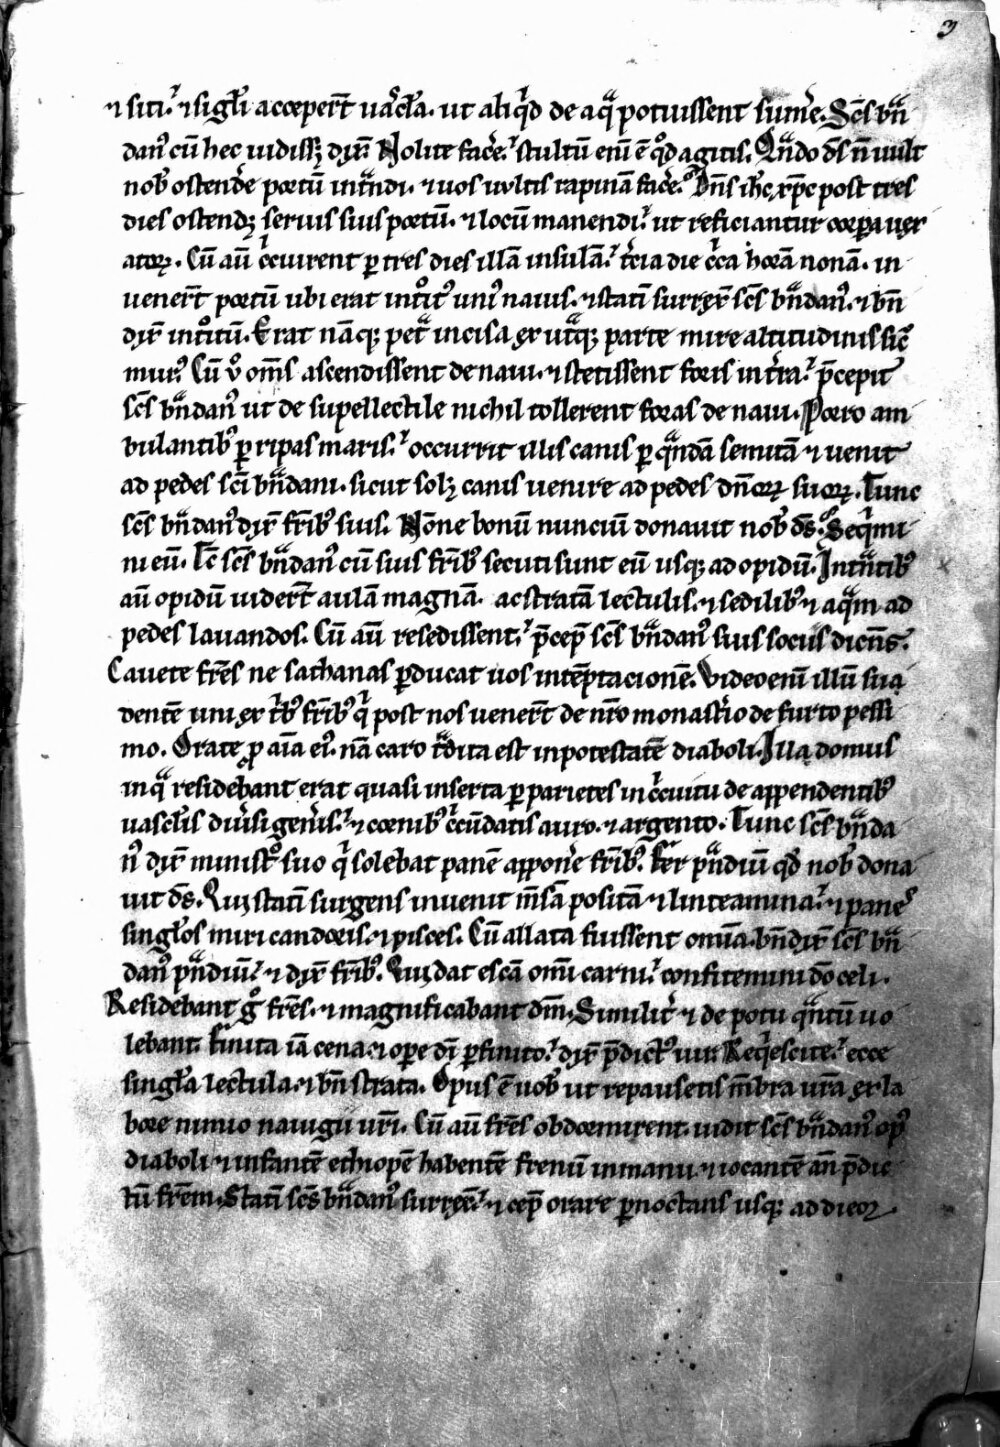 3
⁊ siti. ⁊ sigłi acceper̄t uasc̄la. ut aliqͥd de aqᷓ potuissent sum̄e. Sc̄s bᷓn
danꝰ cū hec uidissꝫ dix̄. Nolite fac̄e. stultū eni ē qͦd agitis. Qᷓndo d̄s n̄ uult
nob̄ ostend̄e portū intᷓndi. ⁊ uos uultis rapinā fac̄e. Dn̄s ih̄c xp̄c post tres
dies ostendꝫ seruis suis portū. ⁊ locū manendi. ut reficiantur corꝑa uex
atorꝝ. Cū aū cͥcuirent ꝑ tres dies illā insulā. tͥcia die cͥca horā nonā. in
uener̄t portū ubi erat intͦitꝰ uniꝰ nauis. ⁊ statī surrex̄ sc̄s bᷓndanꝰ. ⁊ bn̄
dix̄ intͦitū. Erat nāqꝫ petᷓ incisa ex utᷓqꝫ parte mire altitudinis sic̄
murꝰ. Cū ͦv om̄s ascendissent de naui. ⁊ stetissent foris in tͥra. p̄cepit
sc̄s bᷓndanꝰ ut de supellectile nichil tollerent foras de naui. Porro am
bulantibꝰ ꝑ ripas maris. occurrit illis canis ꝑ qᷓndā semitā ⁊ uenit
ad pedes sc̄i bᷓndani. sicut solꝫ canis uenire ad pedes dn̄orꝝ suorꝝ. Tunc
sc̄s bᷓndanꝰ dix̄ fr̄ibꝰ suis. Nōne bonū nunciū donauit nob̄ d̄s. Seqͥmi
ni eū. Tc̄ sc̄s bᷓndanꝰ cū suis fr̄ibꝰ secuti sunt eū usqꝫ ad opidū. Intᷓntibꝰ
aū opidū uider̄t aulā magnā. ac stratā lectulis. ⁊ sedilibꝰ ⁊ aqᷓm ad
pedes lauandos. Cū aū resedissent. p̄cep̄ sc̄s bᷓndanꝰ suis sociis dicn̄s.
Cauete fr̄es ne sathanas ꝑducat uos in temptacionē. Video enī illū sua
dentē uni ex tͥbꝰ fr̄ibꝰ qͥ post nos uener̄t de nr̄o monast̄io de furto pessi
mo. Orate ꝓ aīa eiꝰ. nā caro tᷓdita est in potestatē diaboli. Illa domus
in qᷓ residebant erat quasi inserta ꝑ parietes in cͥcuitu de appendentibꝰ
uascłis diu̾si gen̄is. ⁊ cornibꝰ cͥcūdatis auro. ⁊ argento. Tunc sc̄s bᷓnda
nꝰ dix̄ ministͦ suo qͥ solebat panē appon̄e fr̄ibꝰ. Fer pᷓndiū qd̄ nob̄ dona
uit d̄s. Qui statī surgens inuenit m̄sā positā ⁊ linteamina. ⁊ panes
singłos miri candoris. ⁊ pisces. Cū allata fuissent omīa. bn̄dix̄ sc̄s bᷓn
danꝰ pᷓndiū. ⁊ dix̄ fr̄ibꝰ. Qui dat escā omī carni. confitemini dō celi.
Residebant gͦ fr̄es. ⁊ magnificabant dm̄. Similit̄ ⁊ de potu qᷓntū uo
lebant. finita iā cena. ⁊ opere dī ꝑfinito. dix̄ p̄dictꝰ uir Reqͥescite. ecce
singła lectula. ⁊ bn̄ strata. Opus ē uob̄ ut repausetis m̄bra ur̄a ex la
bore nimio nauigii ur̄i. Cū aū fr̄es obdormirent. uidit sc̄s bᷓndanꝰ opꝰ
diaboli. ⁊ infantē ethiopē habentē frenū in manu. ⁊ iocantē an̄ p̄dic
tū fr̄em. Statī sc̄s bᷓndanꝰ surrex̄. ⁊ cep̄ orare ꝑnoctans usqꝫ ad die